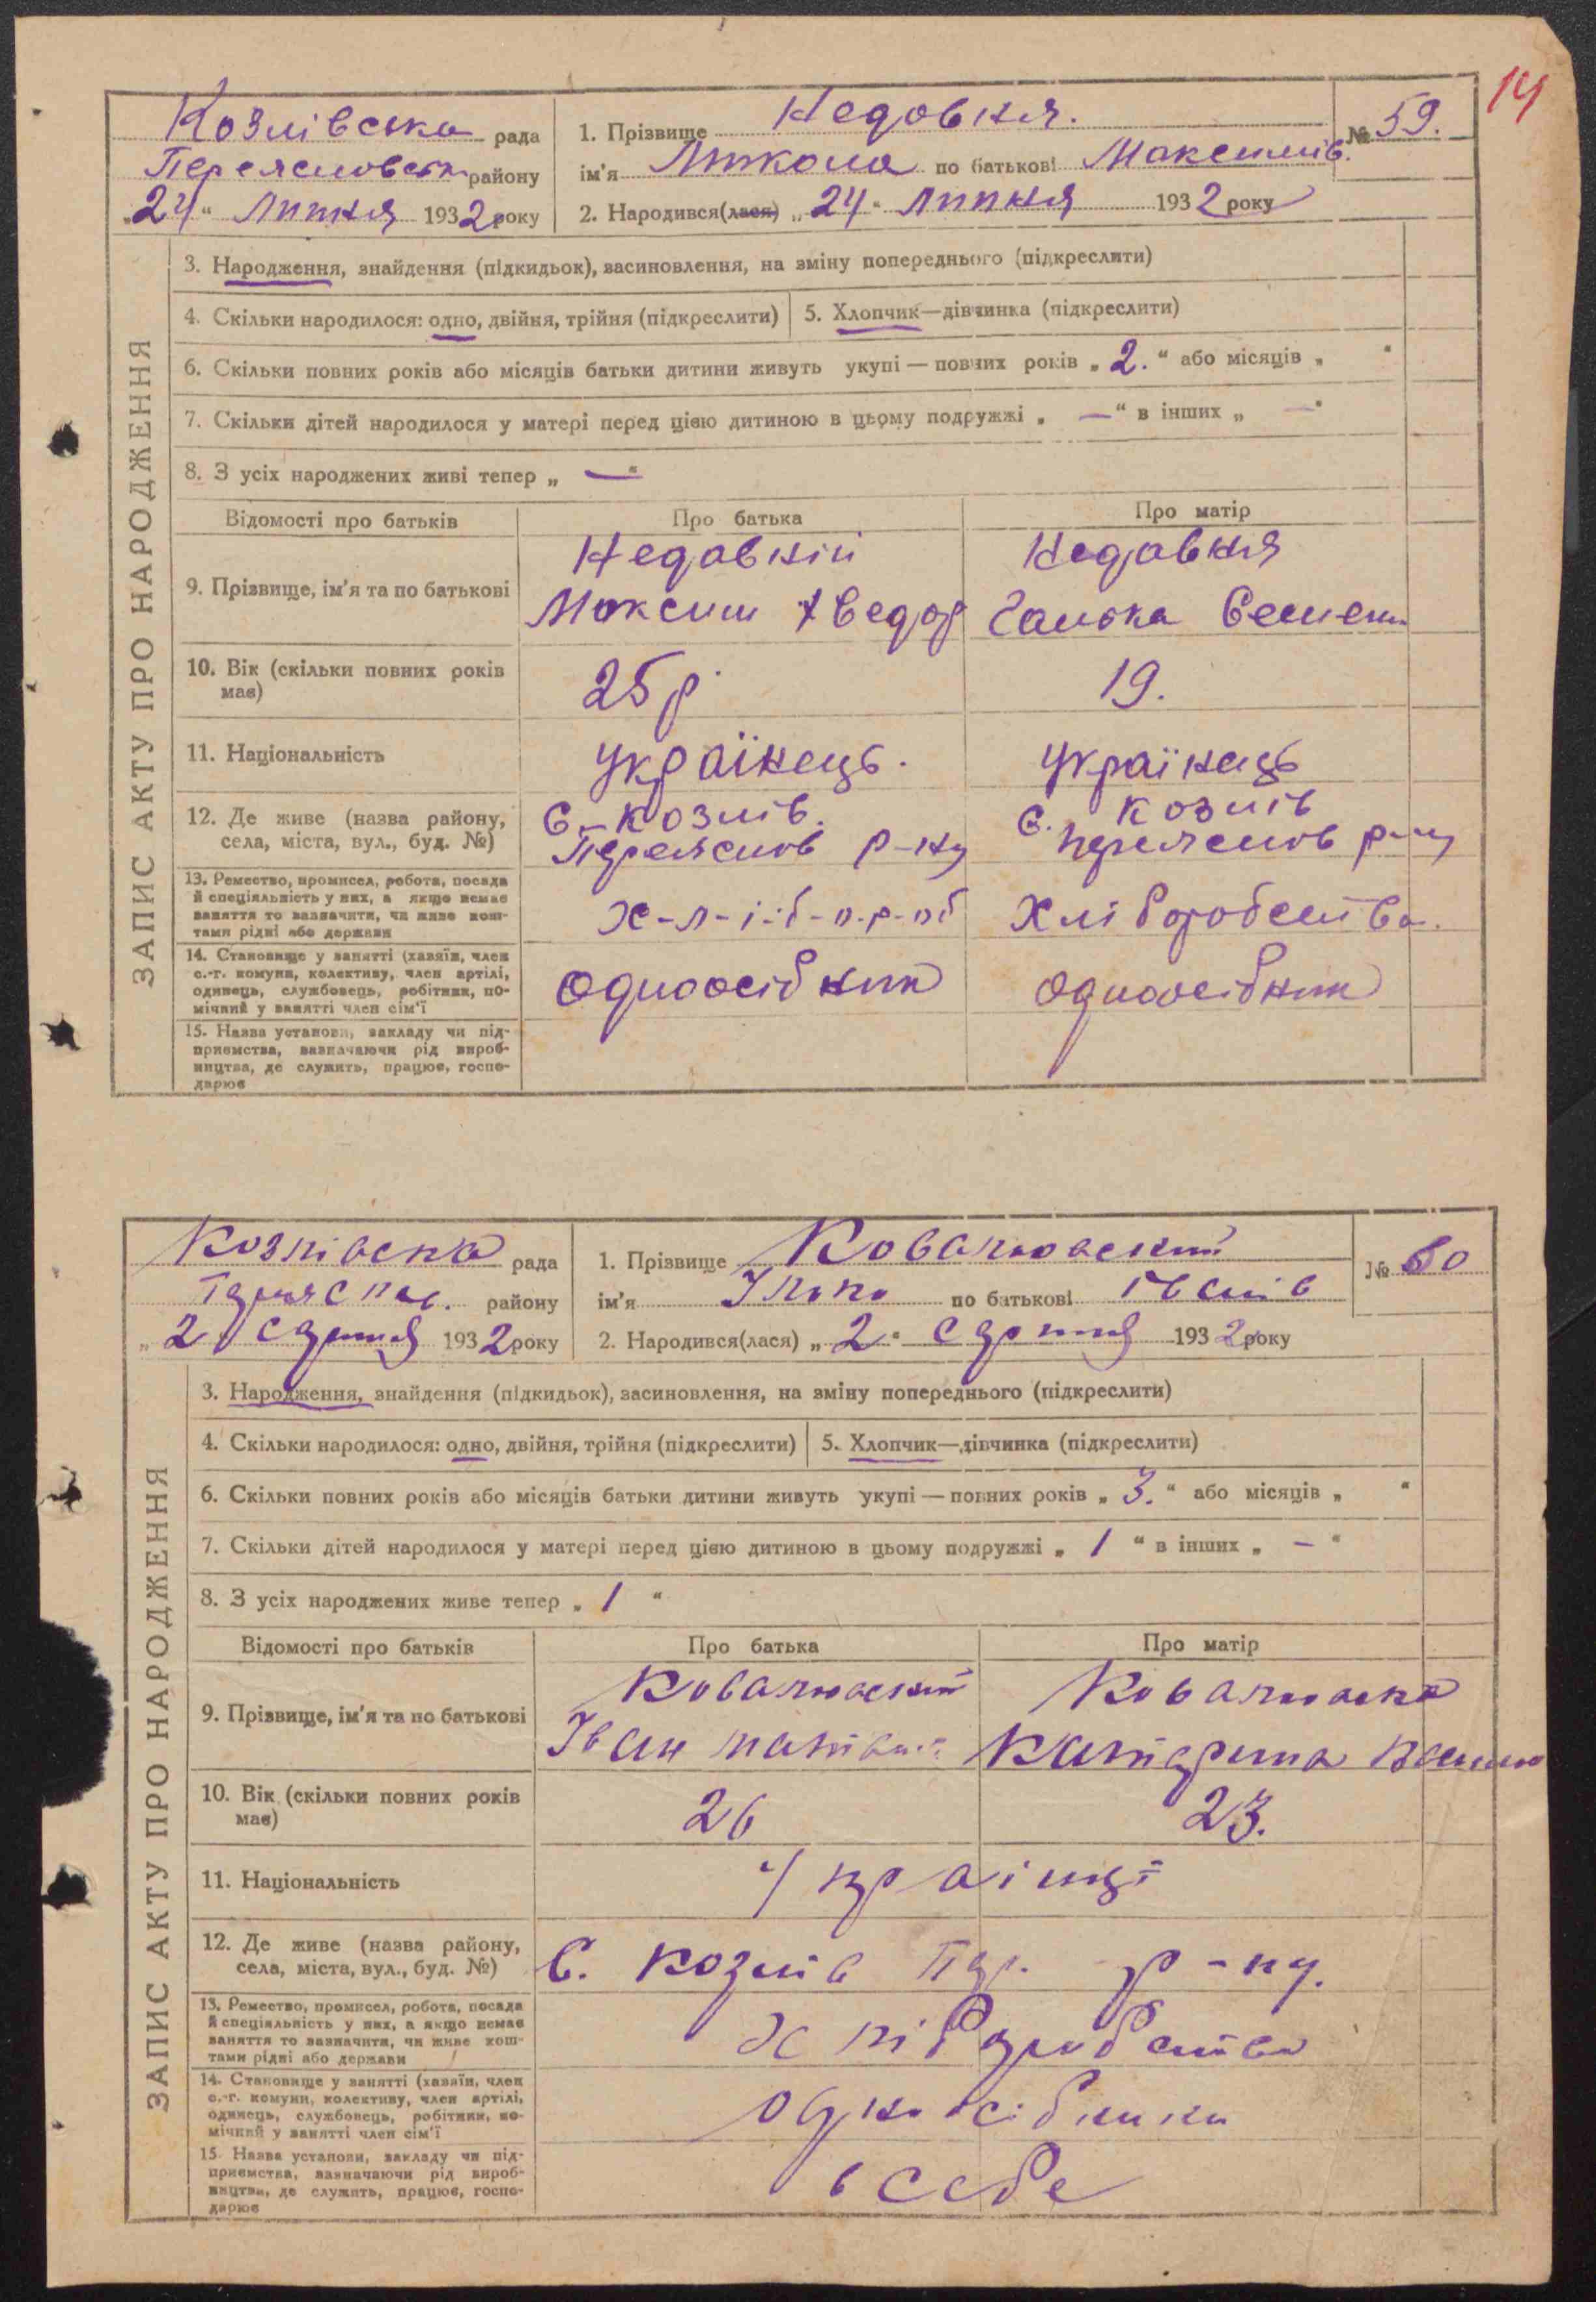 14
Козлівська рада
Переясловськ району
„24“ Липня 1932 року
1. Прізвище Недовкя.
№ 59.
ім'я Микола по батькові Максимів.
2. Народився(лася) „24“ Липня 1932 року
ЗАПИС АКТУ ПРО НАРОДЖЕННЯ
3. Народження, знайдення (підкидьок), засиновлення, на зміну попереднього (підкреслити)
4. Скільки народилося: одно, двійня, трійня (підкреслити) 5. Хлопчик—дівчинка (підкреслити)
6. Скільки повних років або місяців батьки дитини живуть укупі — повних років „2.“ або місяців „ “
7. Скільки дітей народилося у матері перед цією дитиною в цьому подружжі „ — “ в інших „ — “
8. З усіх народжених живі тепер „ — “
Відомості про батьків Про батька Про матір
9. Прізвище, ім'я та по батькові
Недовкій Недовкя
Максим Хведор Ганка Семен
10. Вік (скільки повних років має)
25 р. 19.
11. Національність українець. українець
12. Де живе (назва району, села, міста, вул., буд. №)
С. Козлів. с. Козлів
Переяслов р-ну Переяслов р-ну
13. Ремество, промисел, робота, посада й спеціяльність у них, а якщо немає заняття то зазначити, чи живе коштами рідні або держави
х-л-і-б-о-р-об Хліборобства.
14. Становище у занятті (хазяїн, член с.-г. комуни, колективу, член артілі, одинець, службовець, робітник, помічний у занятті член сім'ї
Одноосібник Одноосібник
15. Назва установи, закладу чи підприємства, зазначаючи рід виробництва, де служить, працює, господарює
Козлівська рада
Переяслав. району
„2“ Серпня 1932 року
1. Прізвище Ковалювський
№ 60
ім'я Ілько по батькові Іванів
2. Народився(лася) „2“ Серпня 1932 року
ЗАПИС АКТУ ПРО НАРОДЖЕННЯ
3. Народження, знайдення (підкидьок), засиновлення, на зміну попереднього (підкреслити)
4. Скільки народилося: одно, двійня, трійня (підкреслити) 5. Хлопчик—дівчинка (підкреслити)
6. Скільки повних років або місяців батьки дитини живуть укупі — повних років „3.“ або місяців „ “
7. Скільки дітей народилося у матері перед цією дитиною в цьому подружжі „1“ в інших „ — “
8. З усіх народжених живе тепер „1“
Відомості про батьків Про батька Про матір
9. Прізвище, ім'я та по батькові
Ковалювський Ковалювська
Іван Катерина
10. Вік (скільки повних років має)
26 23.
11. Національність Українці
12. Де живе (назва району, села, міста, вул., буд. №)
С. Козлів Пер. р-ну.
13. Ремество, промисел, робота, посада й спеціяльність у них, а якщо немає заняття то зазначити, чи живе коштами рідні або держави
Хліборобство
14. Становище у занятті (хазяїн, член с.-г. комуни, колективу, член артілі, одинець, службовець, робітник, помічний у занятті член сім'ї
Одноосібники
15. Назва установи, закладу чи підприємства, зазначаючи рід виробництва, де служить, працює, господарює
в себе